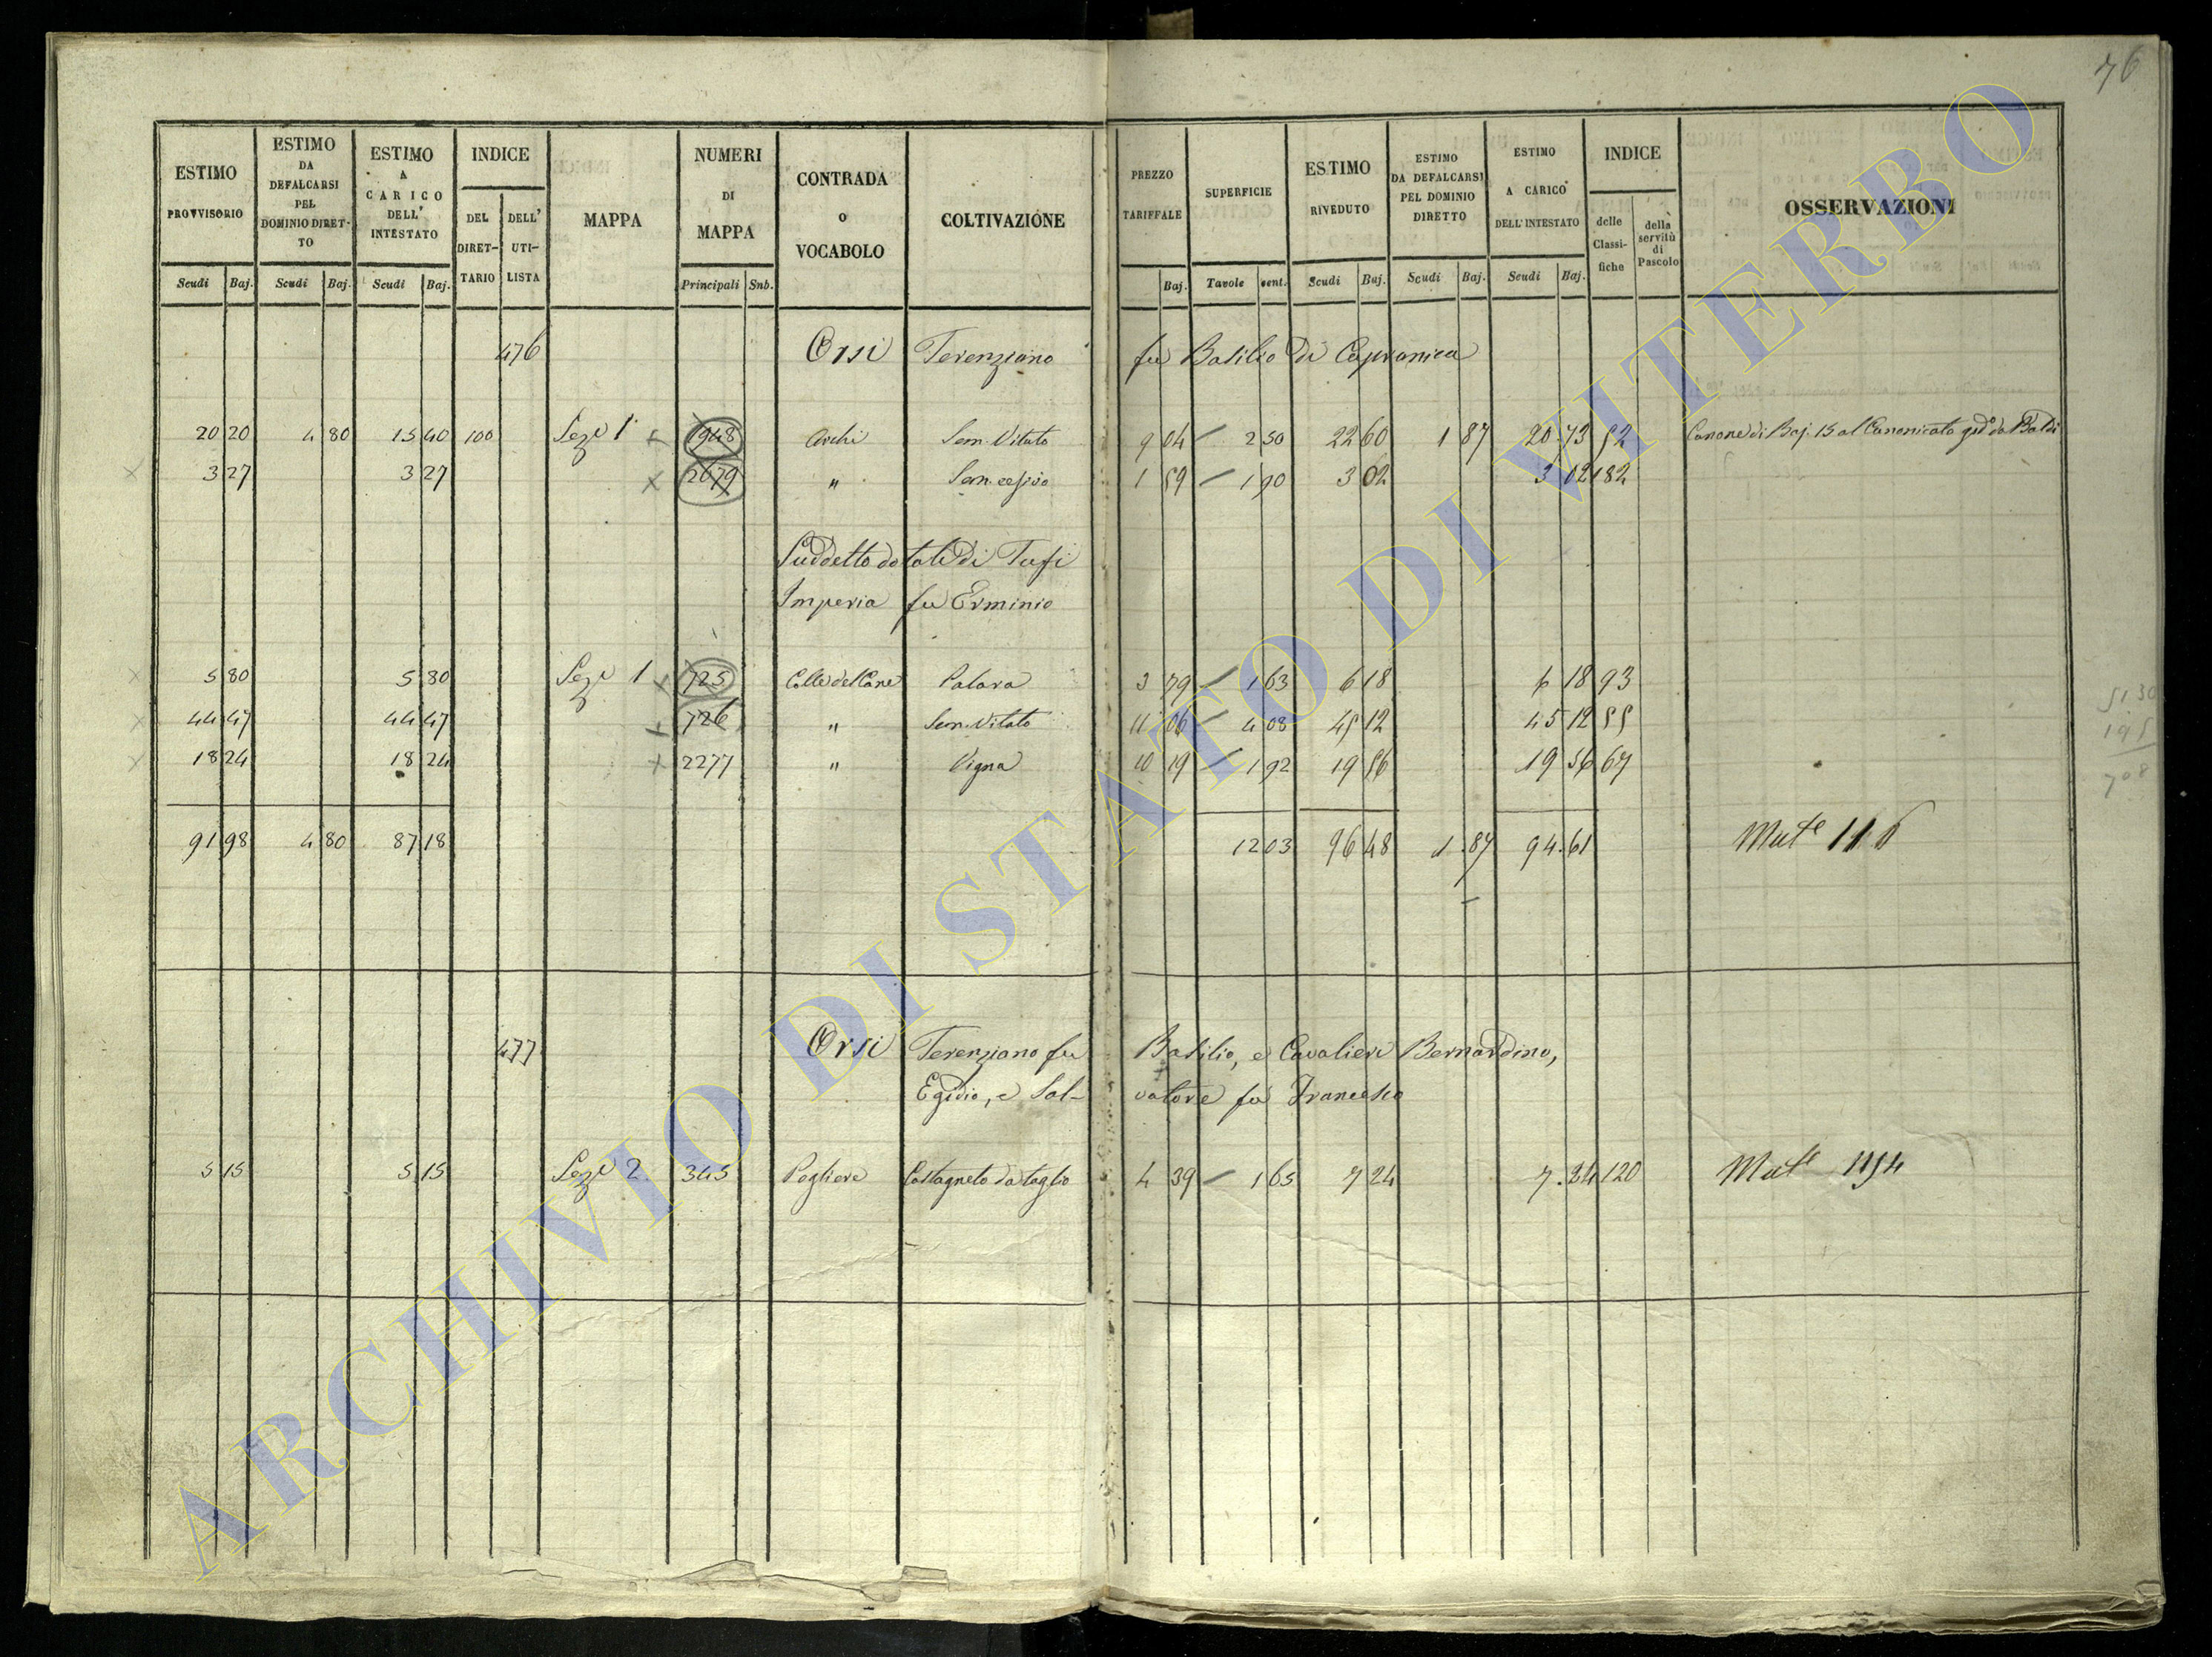 76
ESTIMO PROVVISORIO | ESTIMO DA DEFALCARSI PEL DOMINIO DIRETTO | ESTIMO A CARICO DELL' INTESTATO | INDICE | MAPPA | NUMERI DI MAPPA | CONTRADA O VOCABOLO | COLTIVAZIONE | PREZZO TARIFFALE | SUPERFICIE | ESTIMO RIVEDUTO | ESTIMO DA DEFALCARSI PEL DOMINIO DIRETTO | ESTIMO A CARICO DELL' INTESTATO | INDICE | OSSERVAZIONI
DEL DIRET-TARIO | DELL' UTI-LISTA | delle Classi-fiche | della servitù di Pascolo
Scudi | Baj. | Scudi | Baj. | Scudi | Baj. | Principali | Snb. | Baj. | Tavole | cent. | Scudi | Baj. | Scudi | Baj. | Scudi | Baj.
476 Orsi Terenziano fu Basilio di Capranica
20 20 | 4 80 | 15 40 | 100 | Seze 1 | 1948 | Archi | Sem. Vitato | 9 04 | 2 50 | 22 60 | 1 87 | 20 73 | 52 | Canone di Baj. 15 al Canonicato god. da Baldi
3 27 | 3 27 | 2079 | " | Sem. cesivo | 1 59 | 1 90 | 3 02 | 3 02 | 182
Suddetto dotale di Tufi
Imperia fu Erminio
5 80 | 5 80 | Sezе 1 | 725 | Colle del Cane | Palara | 3 79 | 1 63 | 6 18 | 6 18 | 93
44 47 | 44 47 | 726 | " | Sem. Vitato | 11 06 | 4 08 | 45 12 | 45 12 | 55
18 24 | 18 24 | 2277 | " | Vigna | 10 19 | 1 92 | 19 56 | 19 56 | 67
91 98 | 4 80 | 87 18 | 12 03 | 96 48 | 1.87 | 94.61 | Mute 116
477 Orsi Terenziano fu Basilio, e Cavalieri Bernardino,
Egidio, e Salvatore fu Francesco
5 15 | 5 15 | Sezе 2 | 345 | Pogliere | Castagneto da taglio | 4 39 | 1 65 | 7 24 | 7.24 | 120 | Mute 1154
51 30
195
708
ARCHIVIO DI STATO DI VITERBO